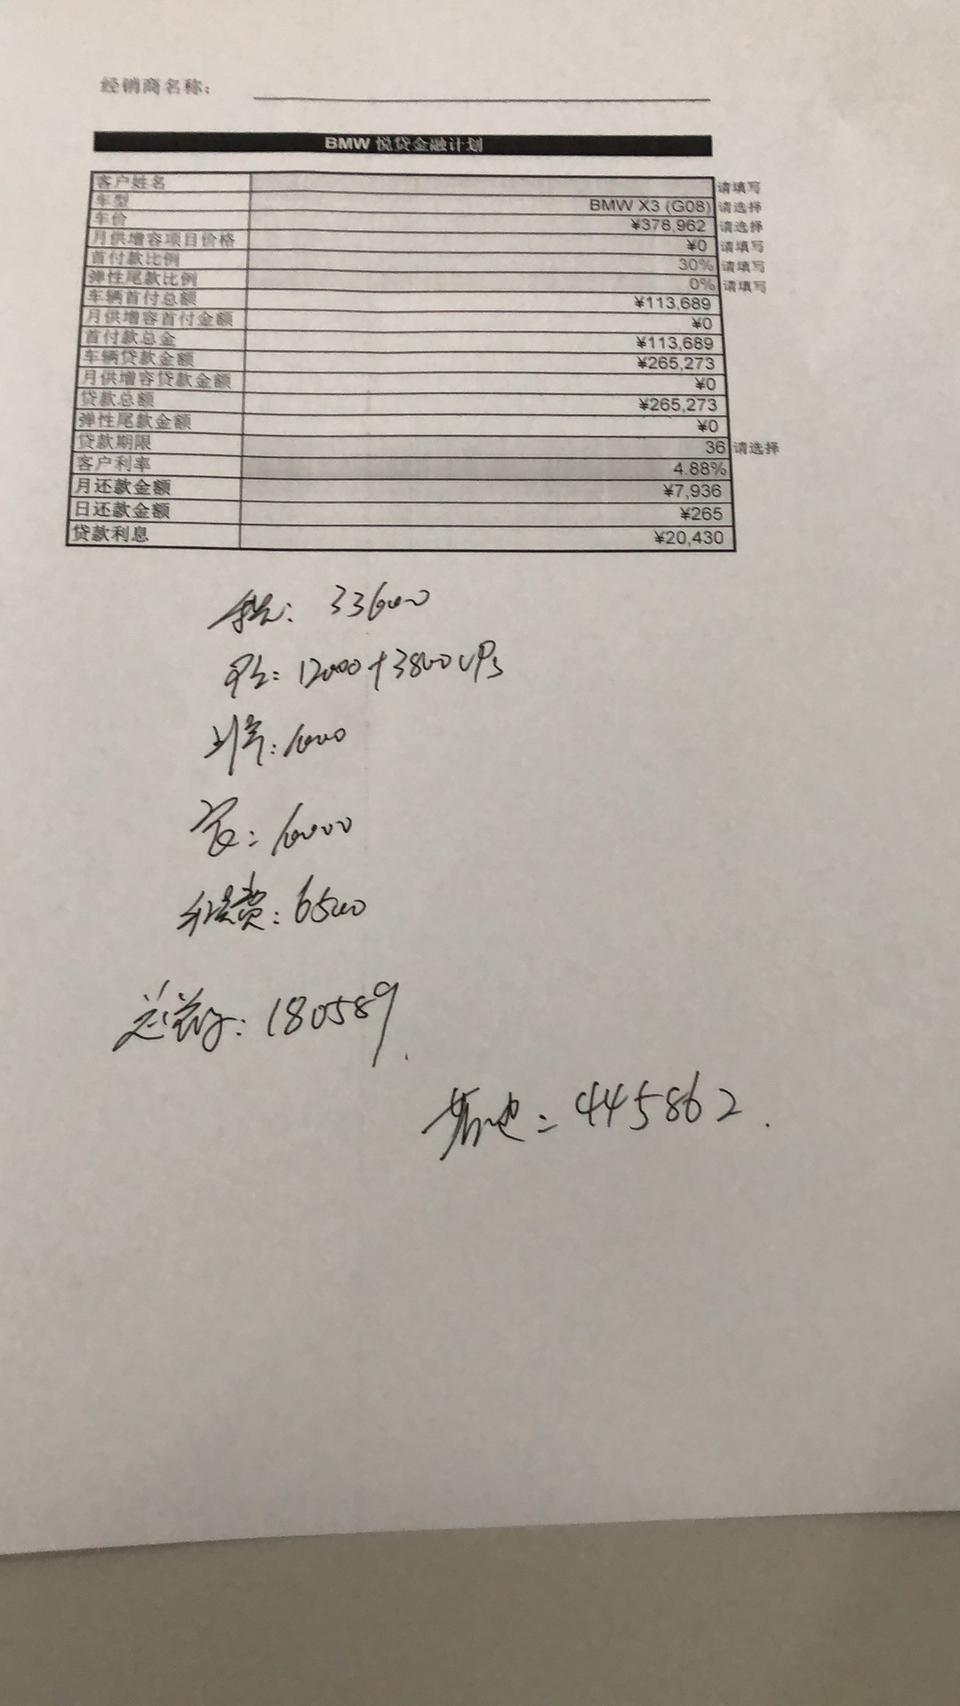 经销商名称：
BMW 悦贷金融计划
客户姓名 请填写
车型 BMW X3 (G08) 请选择
车价 ¥378,962 请选择
月供增容项目价格 ¥0 请填写
首付款比例 30% 请填写
弹性尾款比例 0% 请填写
车辆首付总额 ¥113,689
月供增容首付金额 ¥0
首付款总金 ¥113,689
车辆贷款金额 ¥265,273
月供增容贷款金额 ¥0
贷款总额 ¥265,273
弹性尾款金额 ¥0
贷款期限 36 请选择
客户利率 4.88%
月还款金额 ¥7,936
日还款金额 ¥265
贷款利息 ¥20,430
33600
12000+3800
上牌：1000
装：10000
费：6500
180589
落地：445862.